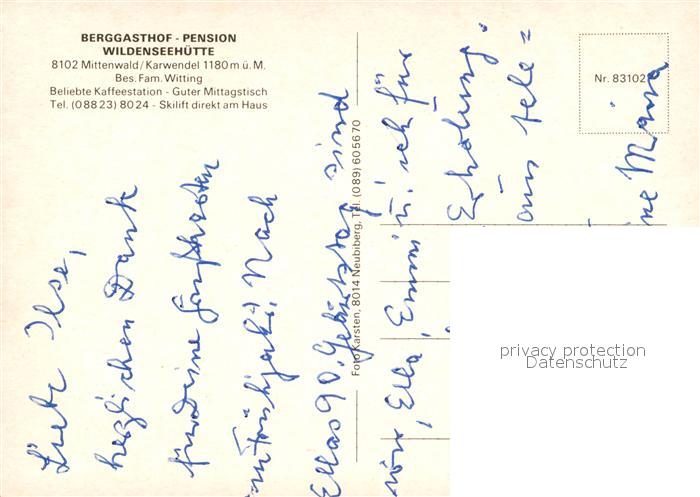 BERGGASTHOF - PENSION
WILDENSEEHÜTTE
8102 Mittenwald/Karwendel 1180 m ü. M.
Bes. Fam. Witting
Beliebte Kaffeestation - Guter Mittagstisch
Tel. (08823) 8024 - Skilift direkt am Haus
Nr. 83102
Foto Karsten, 8014 Neubiberg, Tel. (089) 605670
Liebe Ilse,
herzlichen Dank
für Deine
im Frühjahr! Nach
Ellas 90. Gebŭrtstag sind
wir, Ella, Emmi ŭ. ich für
Erholung
aus
Maria
privacy protection
Datenschutz